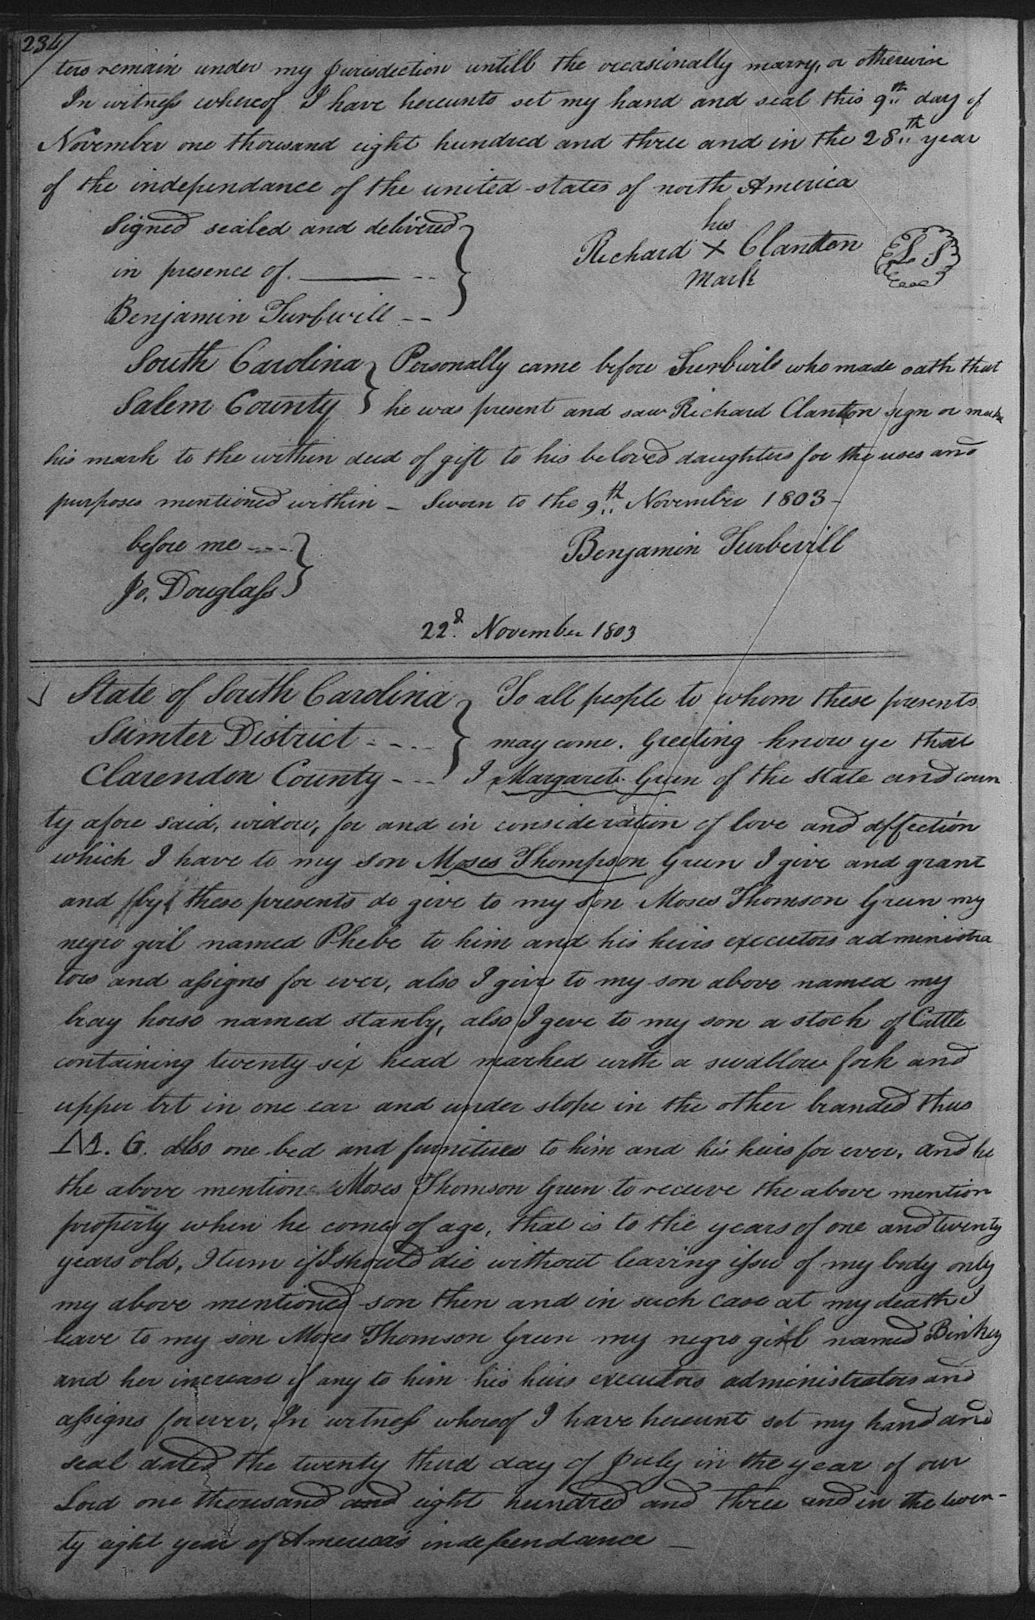 234
ters remain under my jurisdiction untill the occasionally marry, or otherwise
In witness whereof I have hereunto set my hand and seal this 9th day of
November one thousand eight hundred and three and in the 28th year
of the independance of the united states of north America
Signed sealed and delivered
in presence of
Benjamin Turbevill
his
Richard X Clanton
mark
L S
South Carolina
Salem County
Personally came before Turbivile who made oath that
he was present and saw Richard Clanton sign or make
his mark to the within deed of gift to his beloved daughters for the uses and
purposes mentioned within - Sworn to the 9th November 1803 -
before me
Jo. Douglass
Benjamin Turbevill
22d November 1803
State of South Carolina
Sumter District
Clarendon County
To all people to whom these presents
may come. Greeting know ye that
I Margaret Green of the state and coun
ty afore said, widow, for and in consideration of love and affection
which I have to my son Moses Thompson Green I give and grant
and by these presents do give to my son Moses Thomson Green my
negro girl named Phebe to him and his heirs executors administra
tors and assigns for ever, also I give to my son above named my
bray horse named stanby, also I geve to my son a stock of Cattle
containing twenty six head marked with a swallow fork and
upper bit in one ear and under slope in the other branded thus
M. G. also one bed and furniture to him and his heirs for ever. And he
the above mention Moses Thomson Green to receive the above mention
property when he comes of age, that is to the years of one and twenty
years old, Itum if I should die without leaving issue of my body only
my above mentioned son then and in such case at my death I
leave to my son Moses Thomson Green my negro girl named Binkey
and her increase if any to him his heirs executors administrators and
assigns forever, In witness whereof I have hereunt set my hand and
seal dated the twenty third day of July in the year of our
Lord one thousand and eight hundred and three and in the twen-
ty eight year of America's independance -